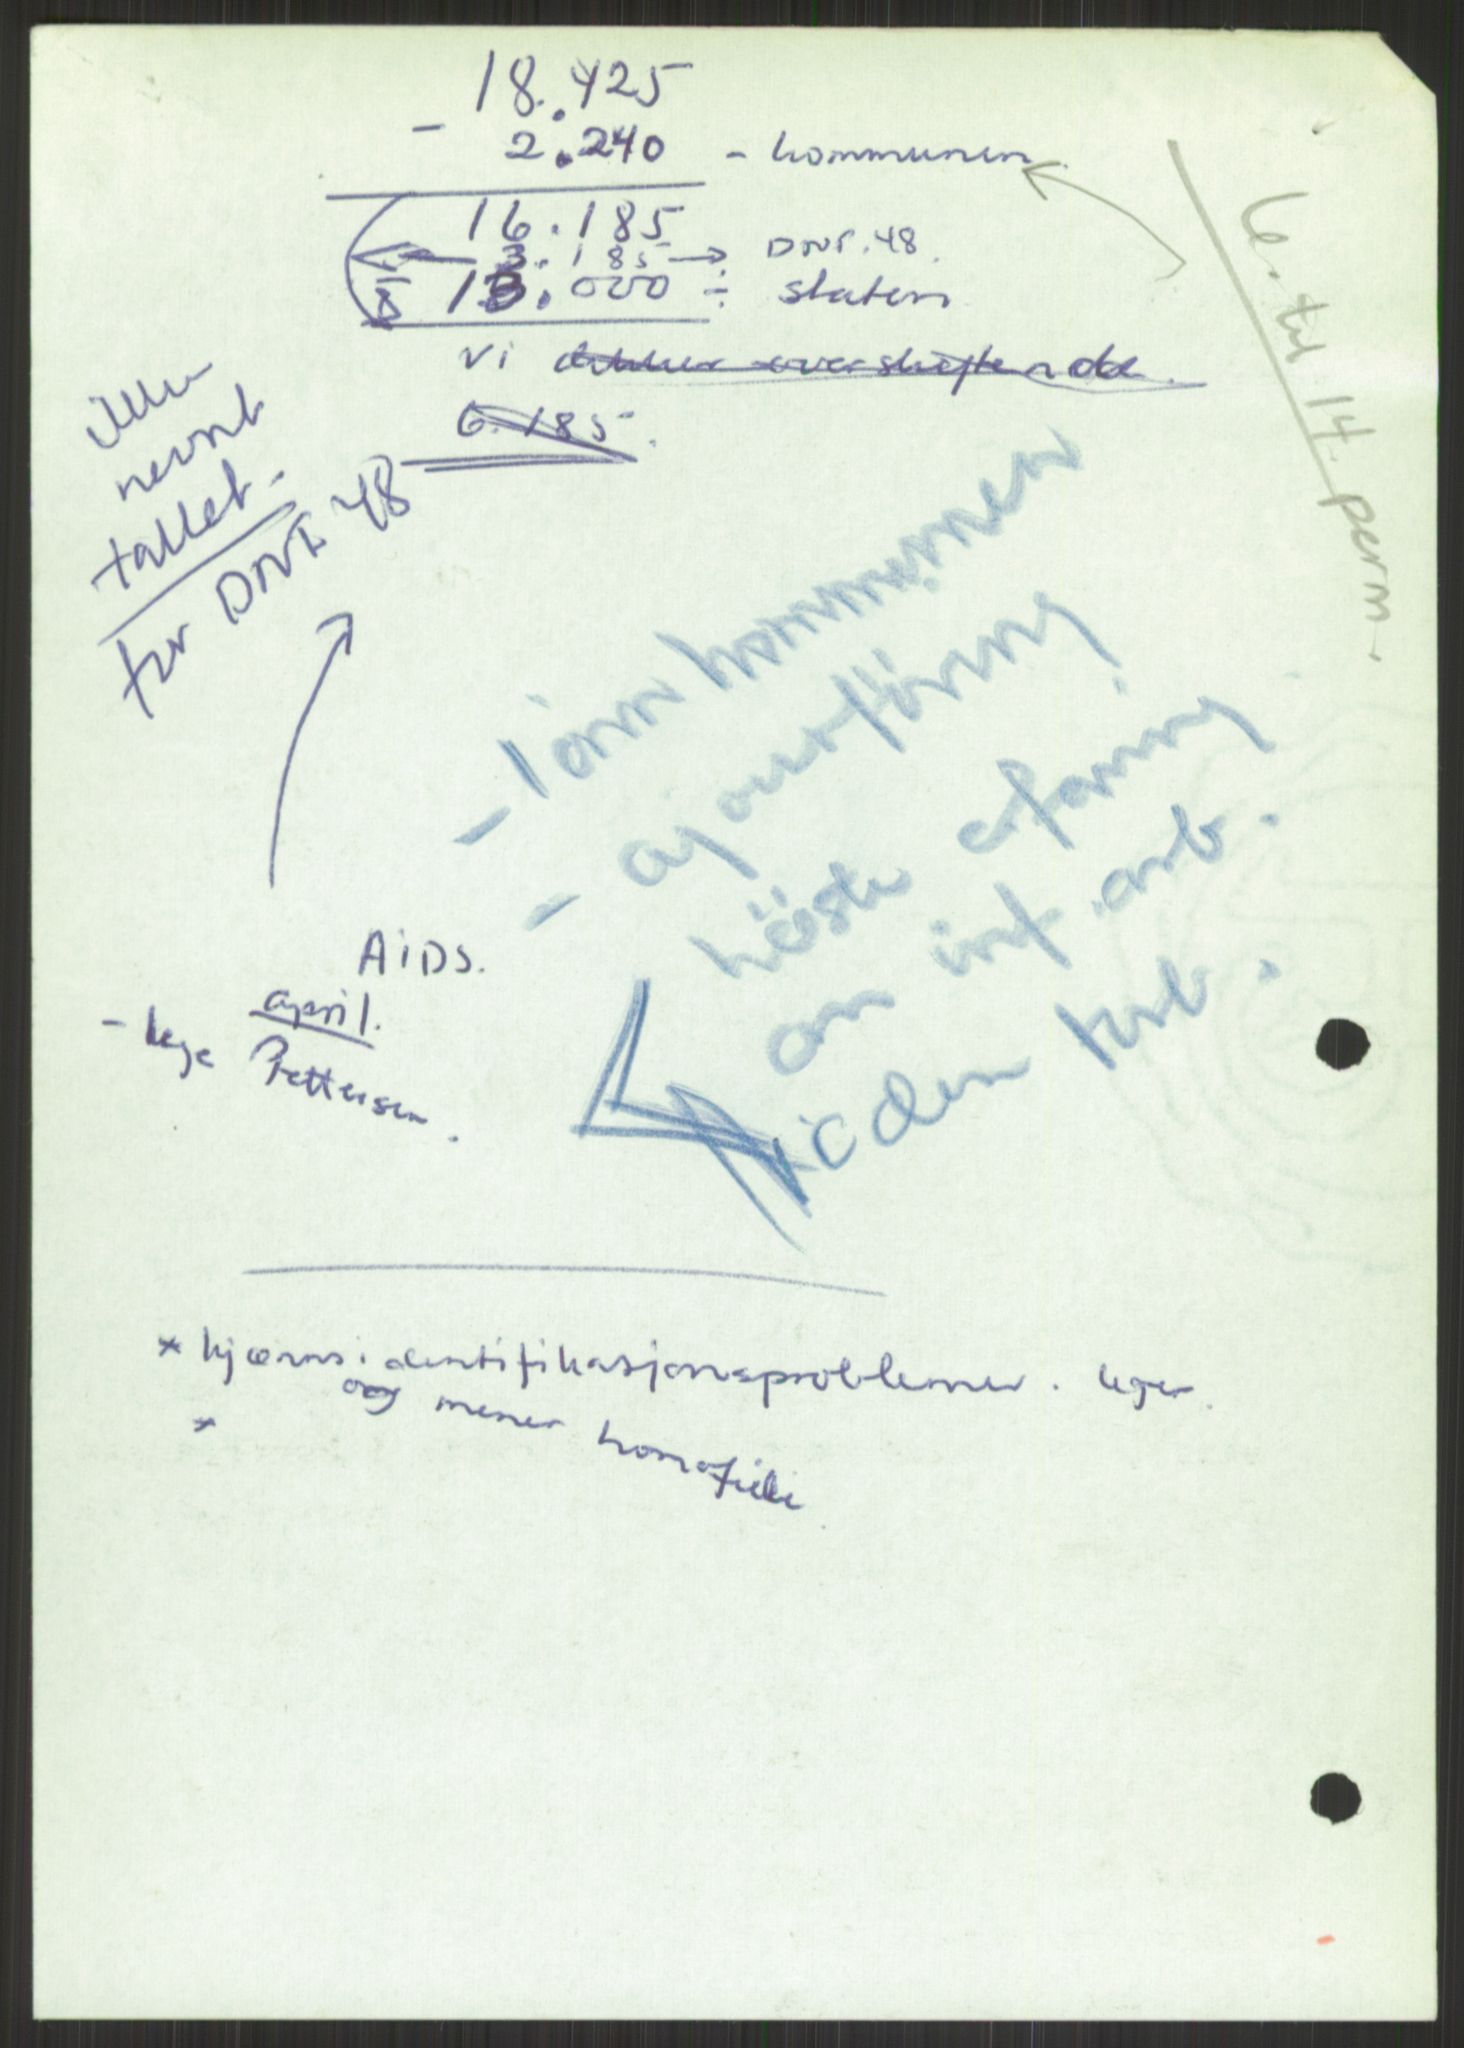 18.425
- 2.240 - kommunen.
16.185
← 3.185 → DNF. 48.
13.000 ÷ staten
vi dekker overskytende.
6.185.
ikke
nevnt
tallet.
for DNF 48
6. til 14. perm.
- kommunen
- ajourføring
høste erfaring
om int. arb.
forb.
AIDS.
april.
- lege Pettersen.
* kjønnsidentifikasjonsproblemer. leger.
og mener homofile
*